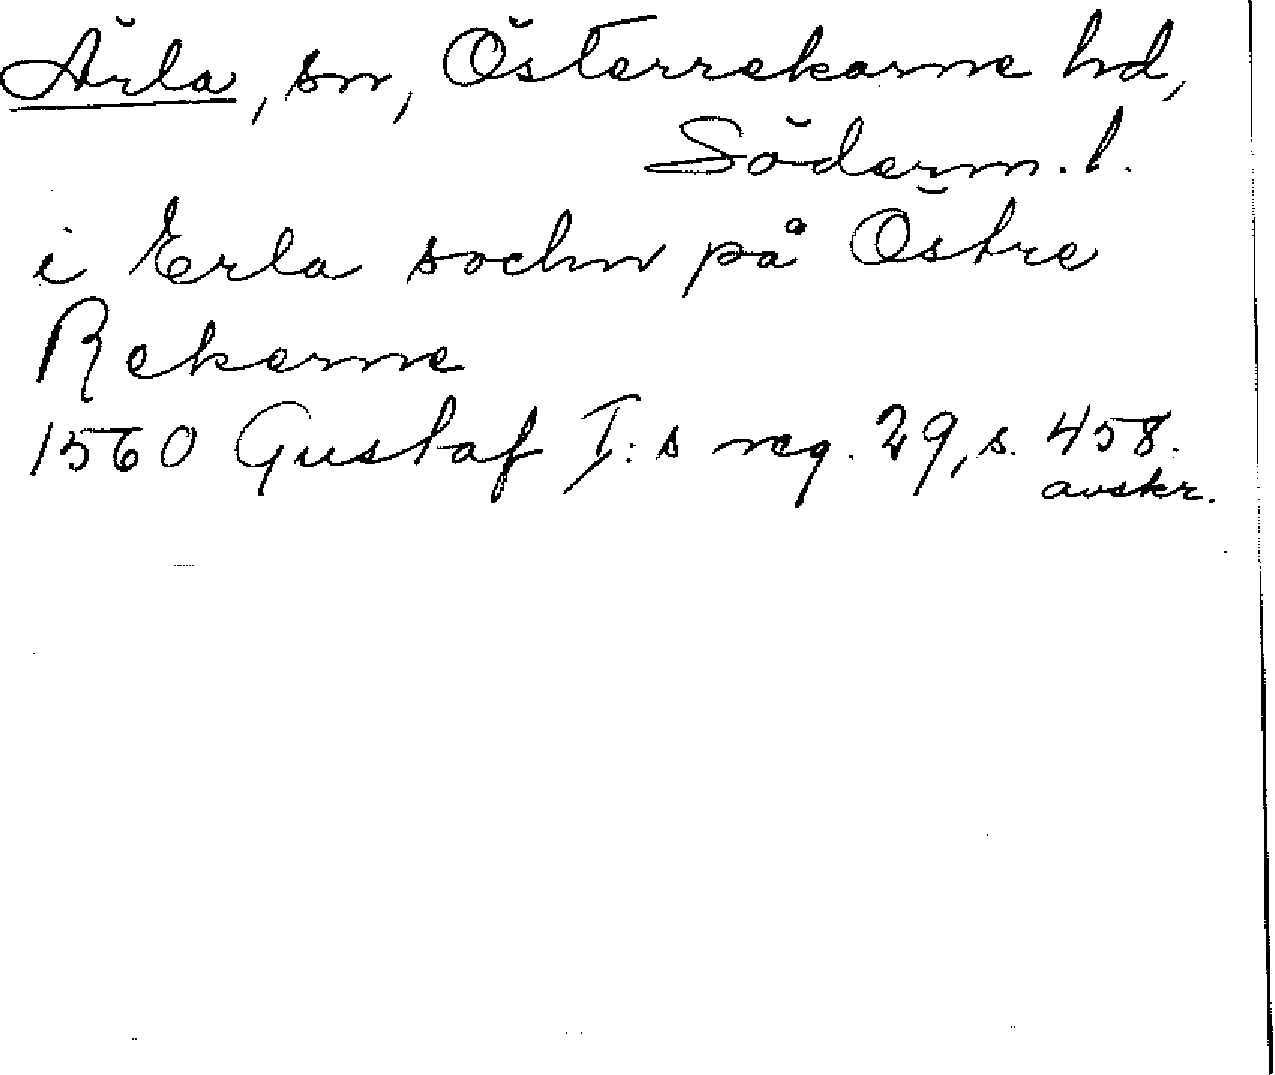 Ärla, sn, Österrekarne hd,
Söderm. l.
i Erla sochn på Östre
Rekerne
1560 Gustaf I:s reg. 29, s. 458.
avskr.